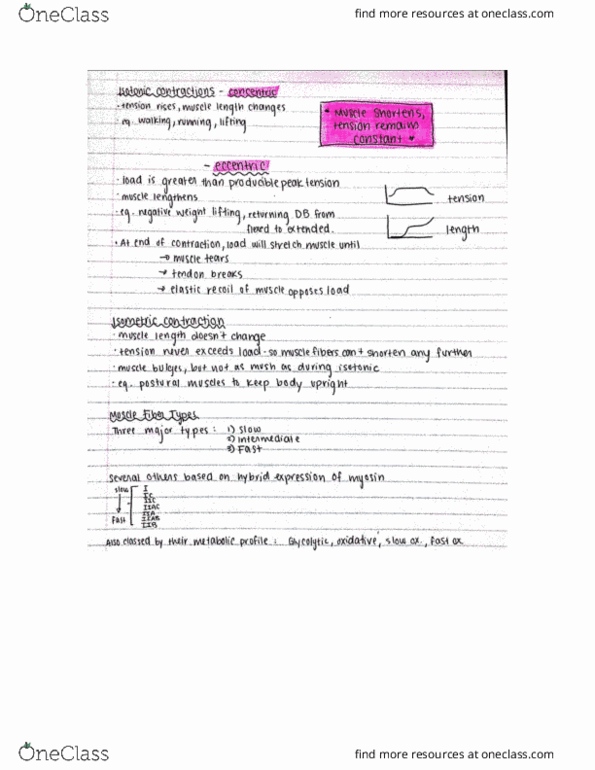 OneClass
find more resources at oneclass.com
Isotonic contractions - concentric
· tension rises, muscle length changes
· eg. walking, running, lifting
* Muscle shortens,
tension remains
constant *
- eccentric
· load is greater than producible peak tension
· muscle lengthens
· eg. negative weight lifting, returning DB from
flexed to extended.
tension
length
· At end of contraction, load will stretch muscle until
→ muscle tears
→ tendon breaks
→ elastic recoil of muscle opposes load
Isometric contraction
· muscle length doesn't change
· tension never exceeds load - so muscle fibers can't shorten any further
· muscle bulges, but not as much as during isotonic
· eg. postural muscles to keep body upright
Muscle Fiber Types
Three major types: 1) Slow
2) Intermediate
3) Fast
Several others based on hybrid expression of myosin
slow
I
IC
IIC
IIAC
IIA
IIAB
IIB
Fast
Also classed by their metabolic profile: Glycolytic, oxidative, slow ox., fast ox
OneClass
find more resources at oneclass.com